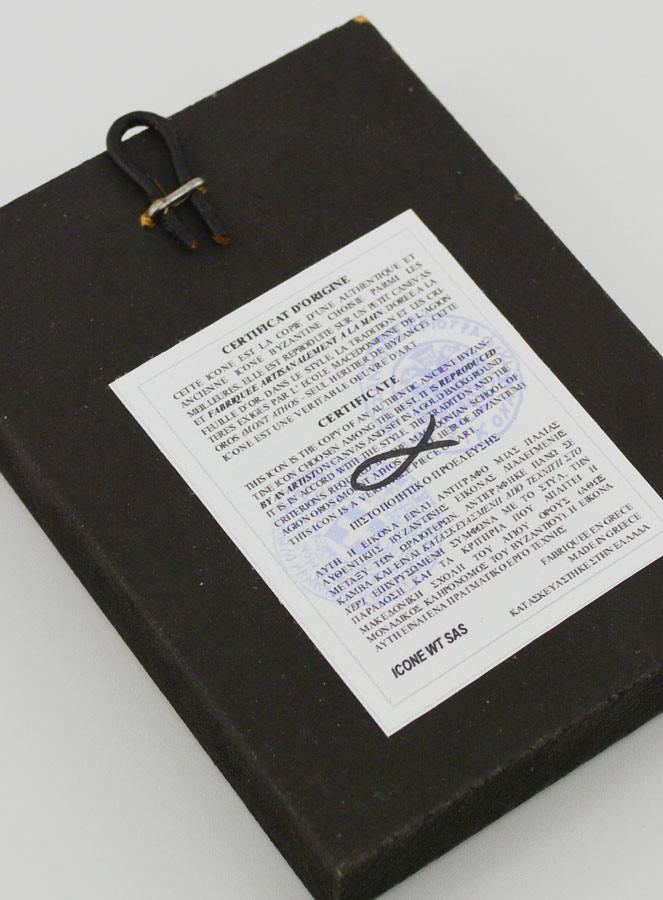 CERTIFICAT D'ORIGINE
CETTE ICONE EST LA COPIE D'UNE AUTHENTIQUE ET
ANCIENNE ICONE BYZANTINE CHOISIE PARMI LES
MEILLEURES, ELLE EST REPRODUITE SUR UN PETIT CANEVAS
ET FABRIQUEE ARTISANALEMENT A LA MAIN, DOREE A LA
FEUILLE D'OR, DANS LE STYLE, LA TRADITION ET LES CRI-
TERES EXIGES PAR L' ECOLE MACEDONIENNE DE L'AGION
OROS (MONT ATHOS) SEUL HERITIER DE BYZANCE. CETTE
ICONE EST UNE VERITABLE OEUVRE D'ART.
CERTIFICATE
THIS ICON IS THE COPY OF AN AUTHENTIC ANCIENT BYZAN-
TINE ICON CHOOSEN AMONG THE BEST. IT IS REPRODUCED
BY AN ARTIST ON CANVAS AND SET IN A GOLD BACKGROUND
IT IS IN ACCORD WITH THE STYLE, THE TRADITION AND THE
CRITERIONS REQUIRED BY THE MACEDONIAN SCHOOL OF
AGION OROS (MOUNT ATHOS) HEIR OF BYZANTIUM
THIS ICON IS A VERITABLE PIECE OF ART.
ΠΙΣΤΟΠΟΙΗΤΙΚΟ ΠΡΟΕΛΕΥΣΗΣ
ΑΥΤΗ Η ΕΙΚΟΝΑ ΕΙΝΑΙ ΑΝΤΙΓΡΑΦΟ ΜΙΑΣ ΠΑΛΙΑΣ
ΑΥΘΕΝΤΙΚΗΣ ΒΥΖΑΝΤΙΝΗΣ ΕΙΚΟΝΑΣ ΔΙΑΛΕΓΜΕΝΗΣ
ΜΕΤΑΞΥ ΤΩΝ ΩΡΑΙΟΤΕΡΩΝ ΑΝΤΙΓΡΑΦΗΚΕ ΠΑΝΩ ΣΕ
ΚΑΜΒΑ ΚΑΙ ΕΙΝΑΙ ΚΑΤΑΣΚΕΥΑΣΜΕΝΗ ΑΠΟ ΤΕΧΝΙΤΗ ΣΤΟ
ΧΕΡΙ, ΕΠΙΧΡΥΣΩΜΕΝΗ ΣΥΜΦΩΝΑ ΜΕ ΤΟ ΣΤΥΛ, ΤΗΝ
ΠΑΡΑΔΟΣΗ ΚΑΙ ΤΑ ΚΡΙΤΗΡΙΑ ΠΟΥ ΑΠΑΙΤΕΙ Η
ΜΑΚΕΔΟΝΙΚΗ ΣΧΟΛΗ ΤΟΥ ΑΓΙΟΥ ΟΡΟΥΣ (ΑΘΩΣ)
ΜΟΝΑΔΙΚΟΣ ΚΛΗΡΟΝΟΜΟΣ ΤΟΥ ΒΥΖΑΝΤΙΟΥ. Η ΕΙΚΟΝΑ
ΑΥΤΗ ΕΙΝΑΙ ΕΝΑ ΠΡΑΓΜΑΤΙΚΟ ΕΡΓΟ ΤΕΧΝΗΣ
FABRIQUEE EN GRECE
MADE IN GREECE
ΚΑΤΑΣΚΕΥΑΣΤΗΚΕ ΣΤΗΝ ΕΛΛΑΔΑ
ICONE WT SAS